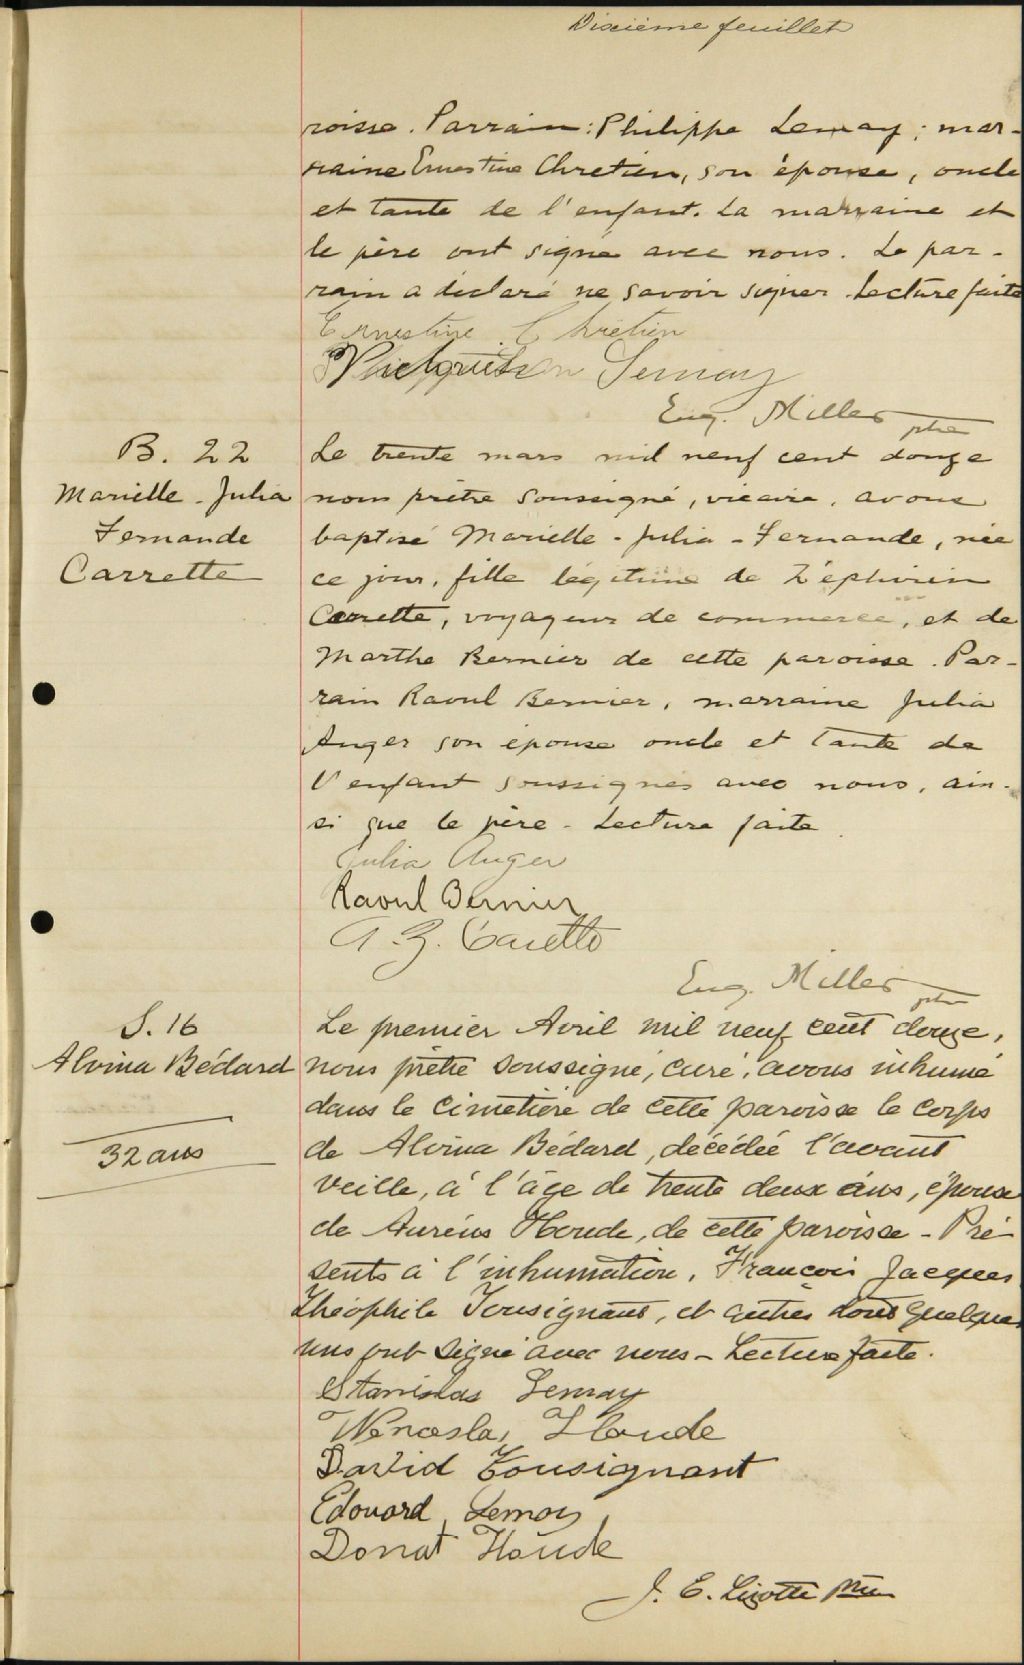 Dixième feuillet
roisse. Parrain : Philippe Lemay ; mar-
raine Ernestine Chretien, son épouse, oncle
et tante de l'enfant. La marraine et
le père ont signé avec nous. Le par-
rain a déclaré ne savoir signer. Lecture faite
Ernestine Chretien
Lemay
Eug. Miller ptre
B. 22
Marielle - Julia
Fernande
Carrette
Le trente mars mil neuf cent douze
nous prêtre soussigné, vicaire, avons
baptisé Marielle - Julia - Fernande, née
ce jour, fille légitime de Zéphirin
Carrette, voyageur de commerce, et de
Marthe Bernier de cette paroisse. Par-
rain Raoul Bernier, marraine Julia
Anger son épouse oncle et tante de
l'enfant soussignés avec nous, ain-
si que le père - Lecture faite
Julia Anger
Raoul Bernier
A. Z. Carette
Eug. Miller ptre
S. 16
Alvina Bédard
32 ans
Le premier Avril mil neuf cent douze,
nous prêtre soussigné, curé, avons inhumé
dans le cimetière de cette paroisse le corps
de Alvina Bédard, décédée l'avant
veille, à l'âge de trente deux ans, épouse
de Auréus Houde, de cette paroisse - Pré-
sents à l'inhumation, François Jacques
Théophile Tousignant, et autres dont quelques
uns ont signé avec nous - Lecture faite.
Stanislas Lemay
Wencesla, Houde
David Tousignant
Edouard Lemay
Donat Houde
J. E. Lizotte ptre